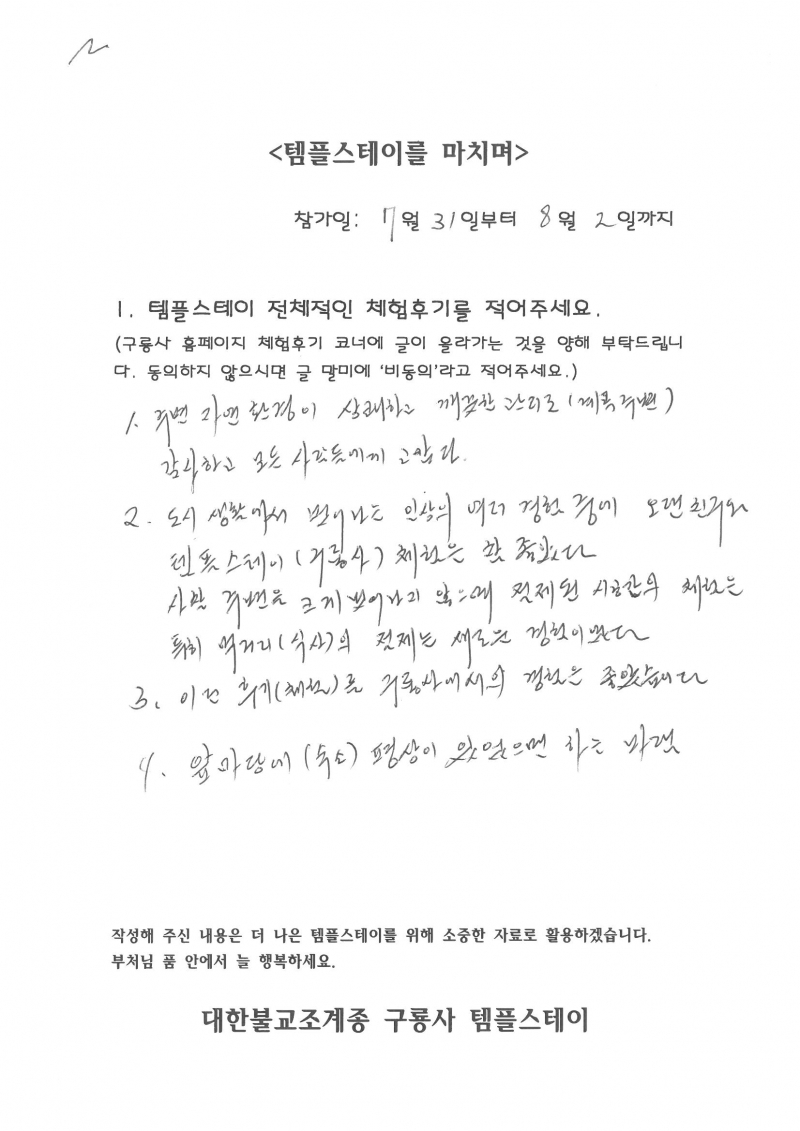 <템플스테이를 마치며>
참가일: 7월 31일부터 8월 2일까지
1. 템플스테이 전체적인 체험후기를 적어주세요.
(구룡사 홈페이지 체험후기 코너에 글이 올라가는 것을 양해 부탁드립니
다. 동의하지 않으시면 글 말미에 '비동의'라고 적어주세요.)
1. 주변 자연환경이 상쾌하고 깨끗한 관리로 (계곡주변)
감사하고 모든 사람들에게 고맙다.
2. 도시 생활에서 벗어나는 인상의 여러 경험 중에 오랜친구와
템플스테이(구룡사) 체험은 참 좋았다
사찰 주변을 크게 벗어나지 않으며 절제된 시공간의 체험은
특히 먹거리(식사)의 절제는 새로운 경험이었다
3. 이런 후기(체험)를 구룡사에서의 경험은 좋았습니다
4. 앞마당에(숙소) 평상이 있었으면 하는 바램
작성해 주신 내용은 더 나은 템플스테이를 위해 소중한 자료로 활용하겠습니다.
부처님 품 안에서 늘 행복하세요.
대한불교조계종 구룡사 템플스테이